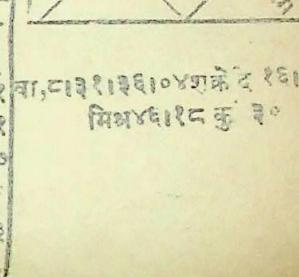 वा,८।३१।३६।०४शक्रे दे १६।
मिश्र४६।१८ कु ३०